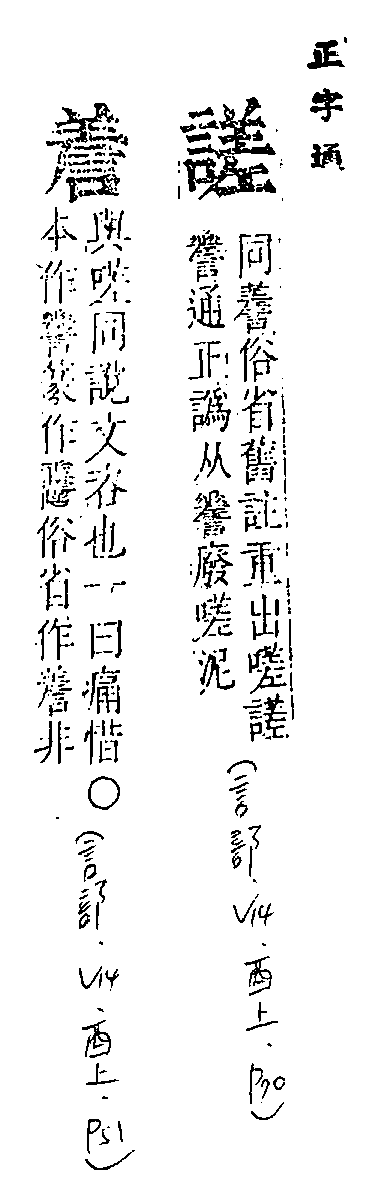 正字通
同俗省舊註重出嗟
通正譌从廢嗟泥
(言部.V14.酉上.P70)
與嗟同說文咨也一曰痛惜○
本作篆作俗省作非
(言部.V14.酉上.P51)